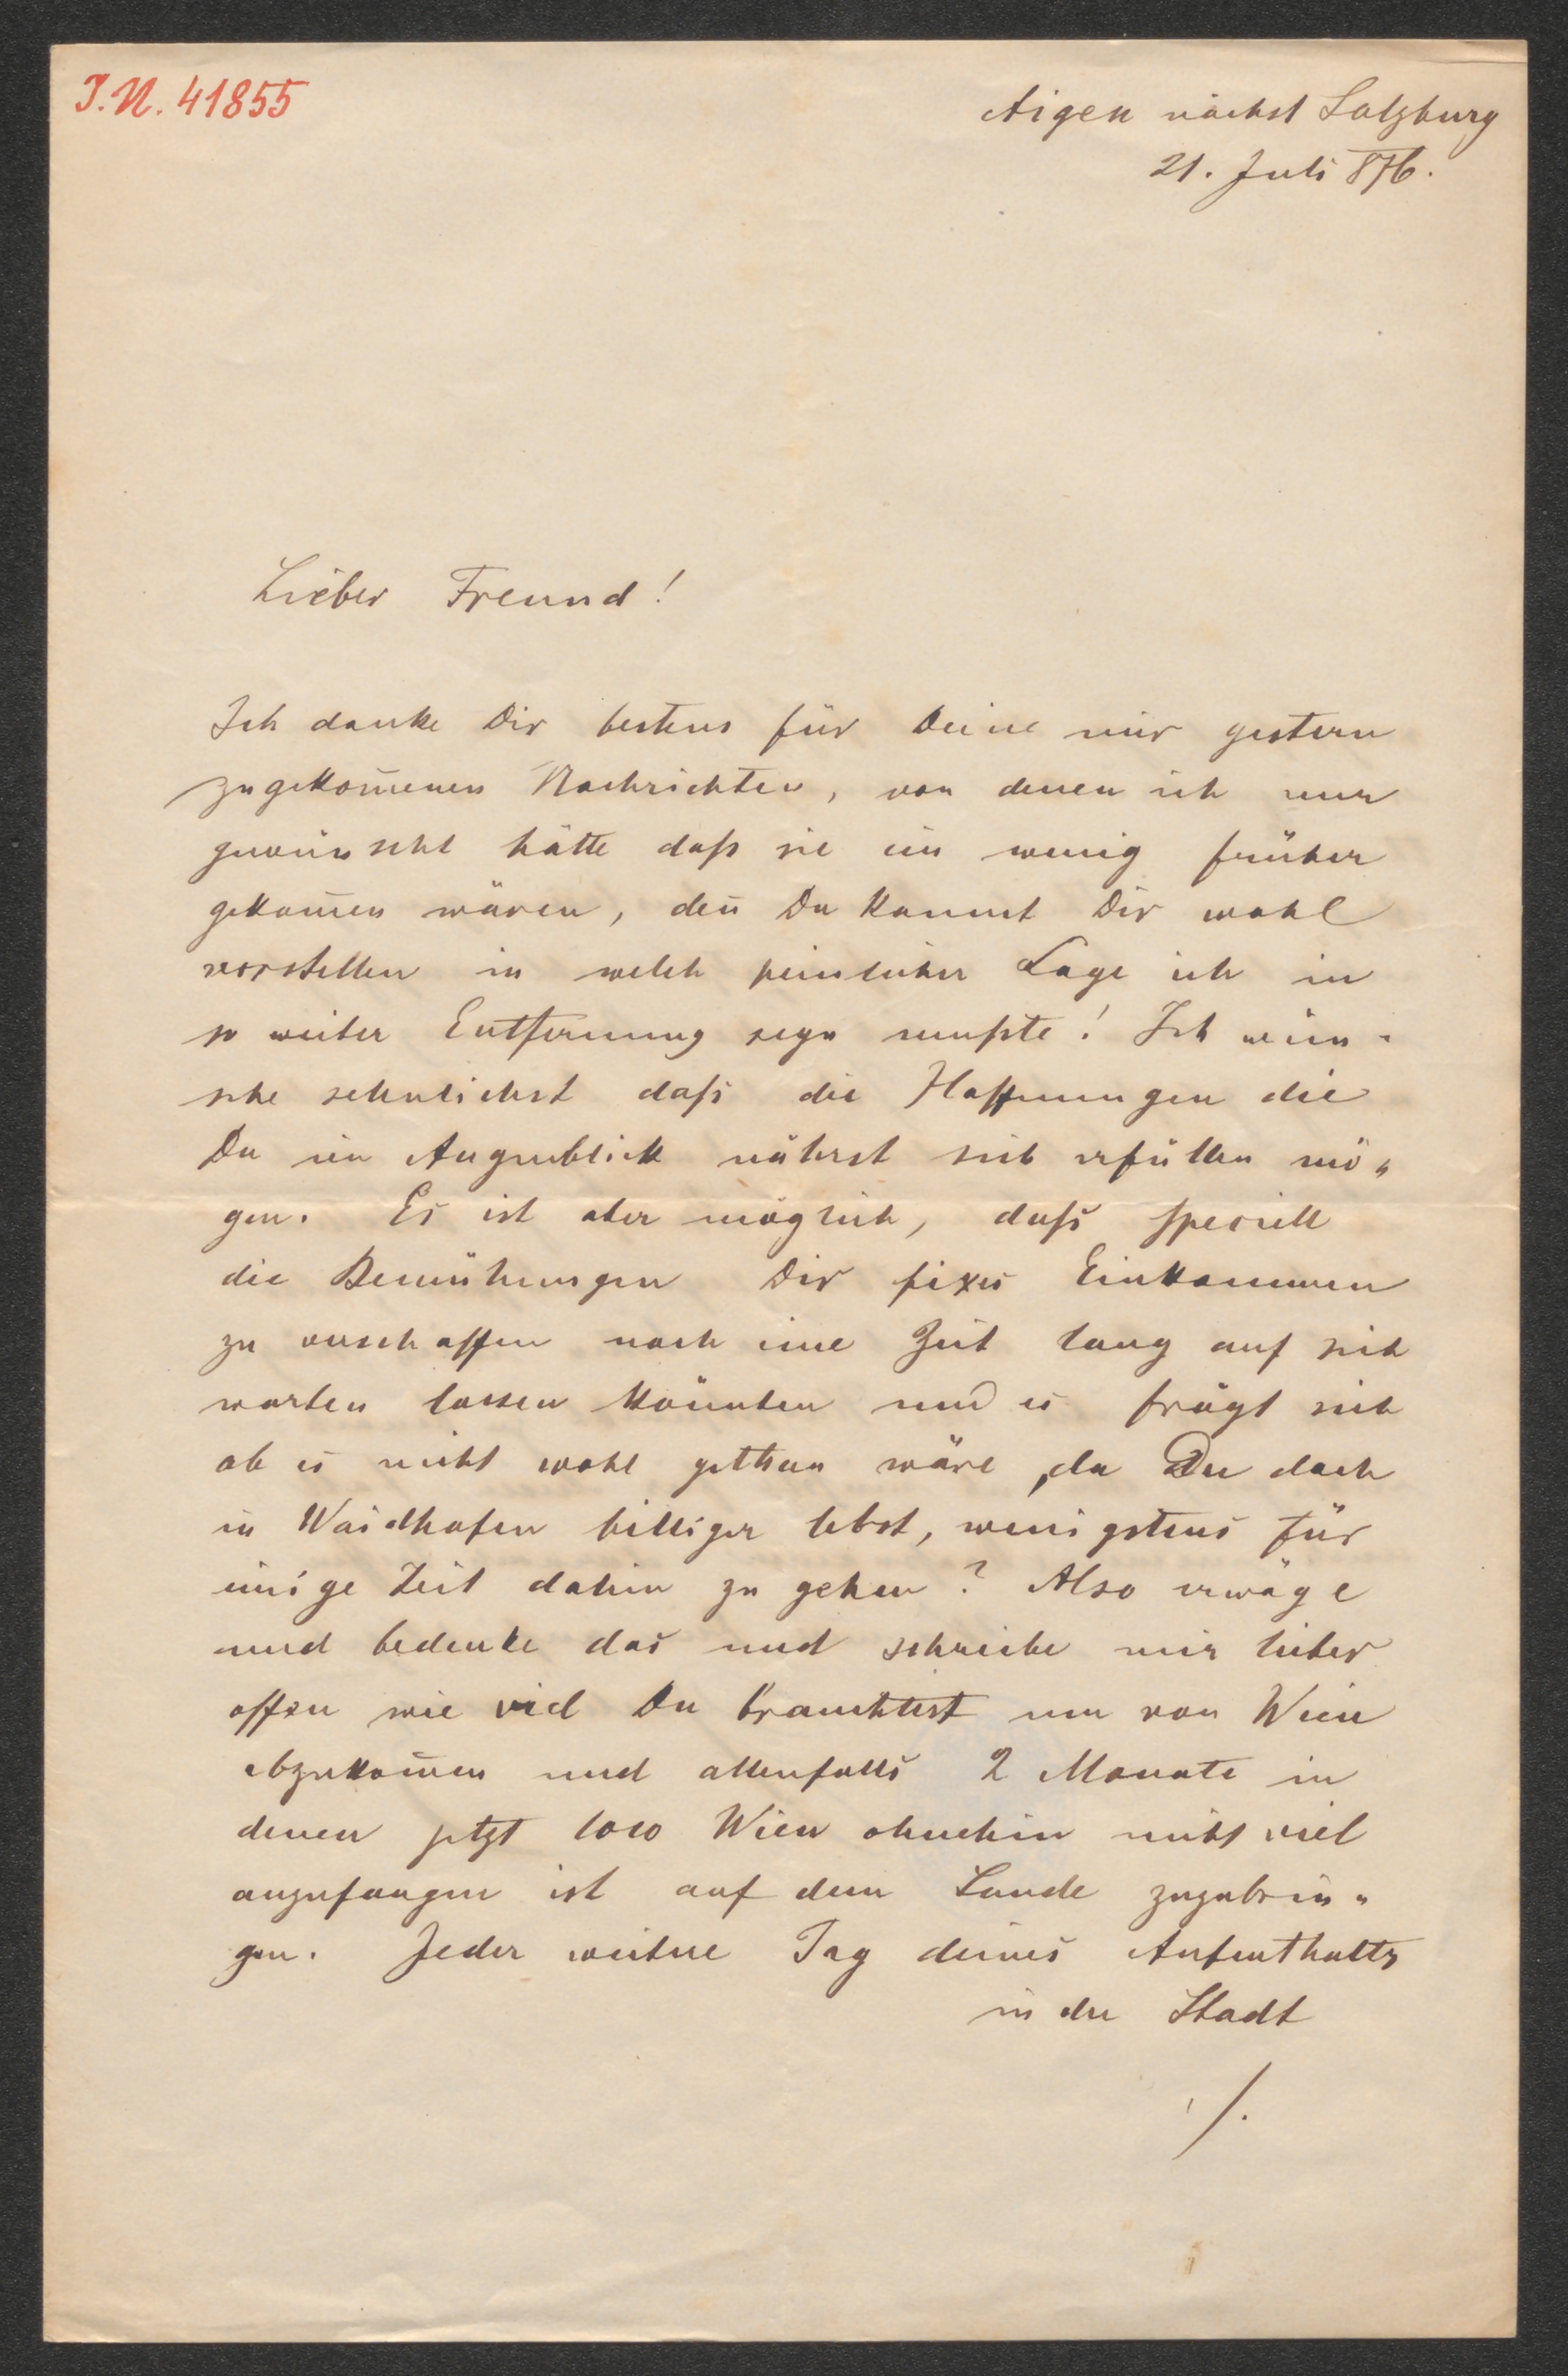 I.N. 41855
Aigen nächst Salzburg
21. Juli 876.
Lieber Freund!
Ich danke Dir bestens für Deine mir gestern
zugekom̄enen Nachrichten, von denen ich nur
gewünscht hätte daß sie ein wenig früher
gekom̄en wären, den̄ Du kannst Dir wohl
vorstellen in welch peinlicher Lage ich in
so weiter Entfernung seyn mußte! Ich wün-
sche sehnlichst daß die Hoffnungen die
Du im Augenblick nährst sich erfüllen mö-
gen. Es ist aber möglich, daß speciell
die Bemühungen Dir fixes Einkommen
zu verschaffen noch eine Zeit lang auf sich
warten lassen könnten und es frägt sich
ob es nicht wohl gethan wäre, da Du doch
in Waidhofen billiger lebst, wenigstens für
einige Zeit dahin zu gehen? Also erwäge
und bedenke das und schreibe mir lieber
offen wie viel Du brauchtest um von Wien
abzukom̄en und allenfalls 2 Monate in
denen jetzt loco Wien ohnehin nicht viel
anzufangen ist auf dem Lande zuzubrin-
gen. Jeder weitere Tag deines Aufenthalts
in der Stadt
./.